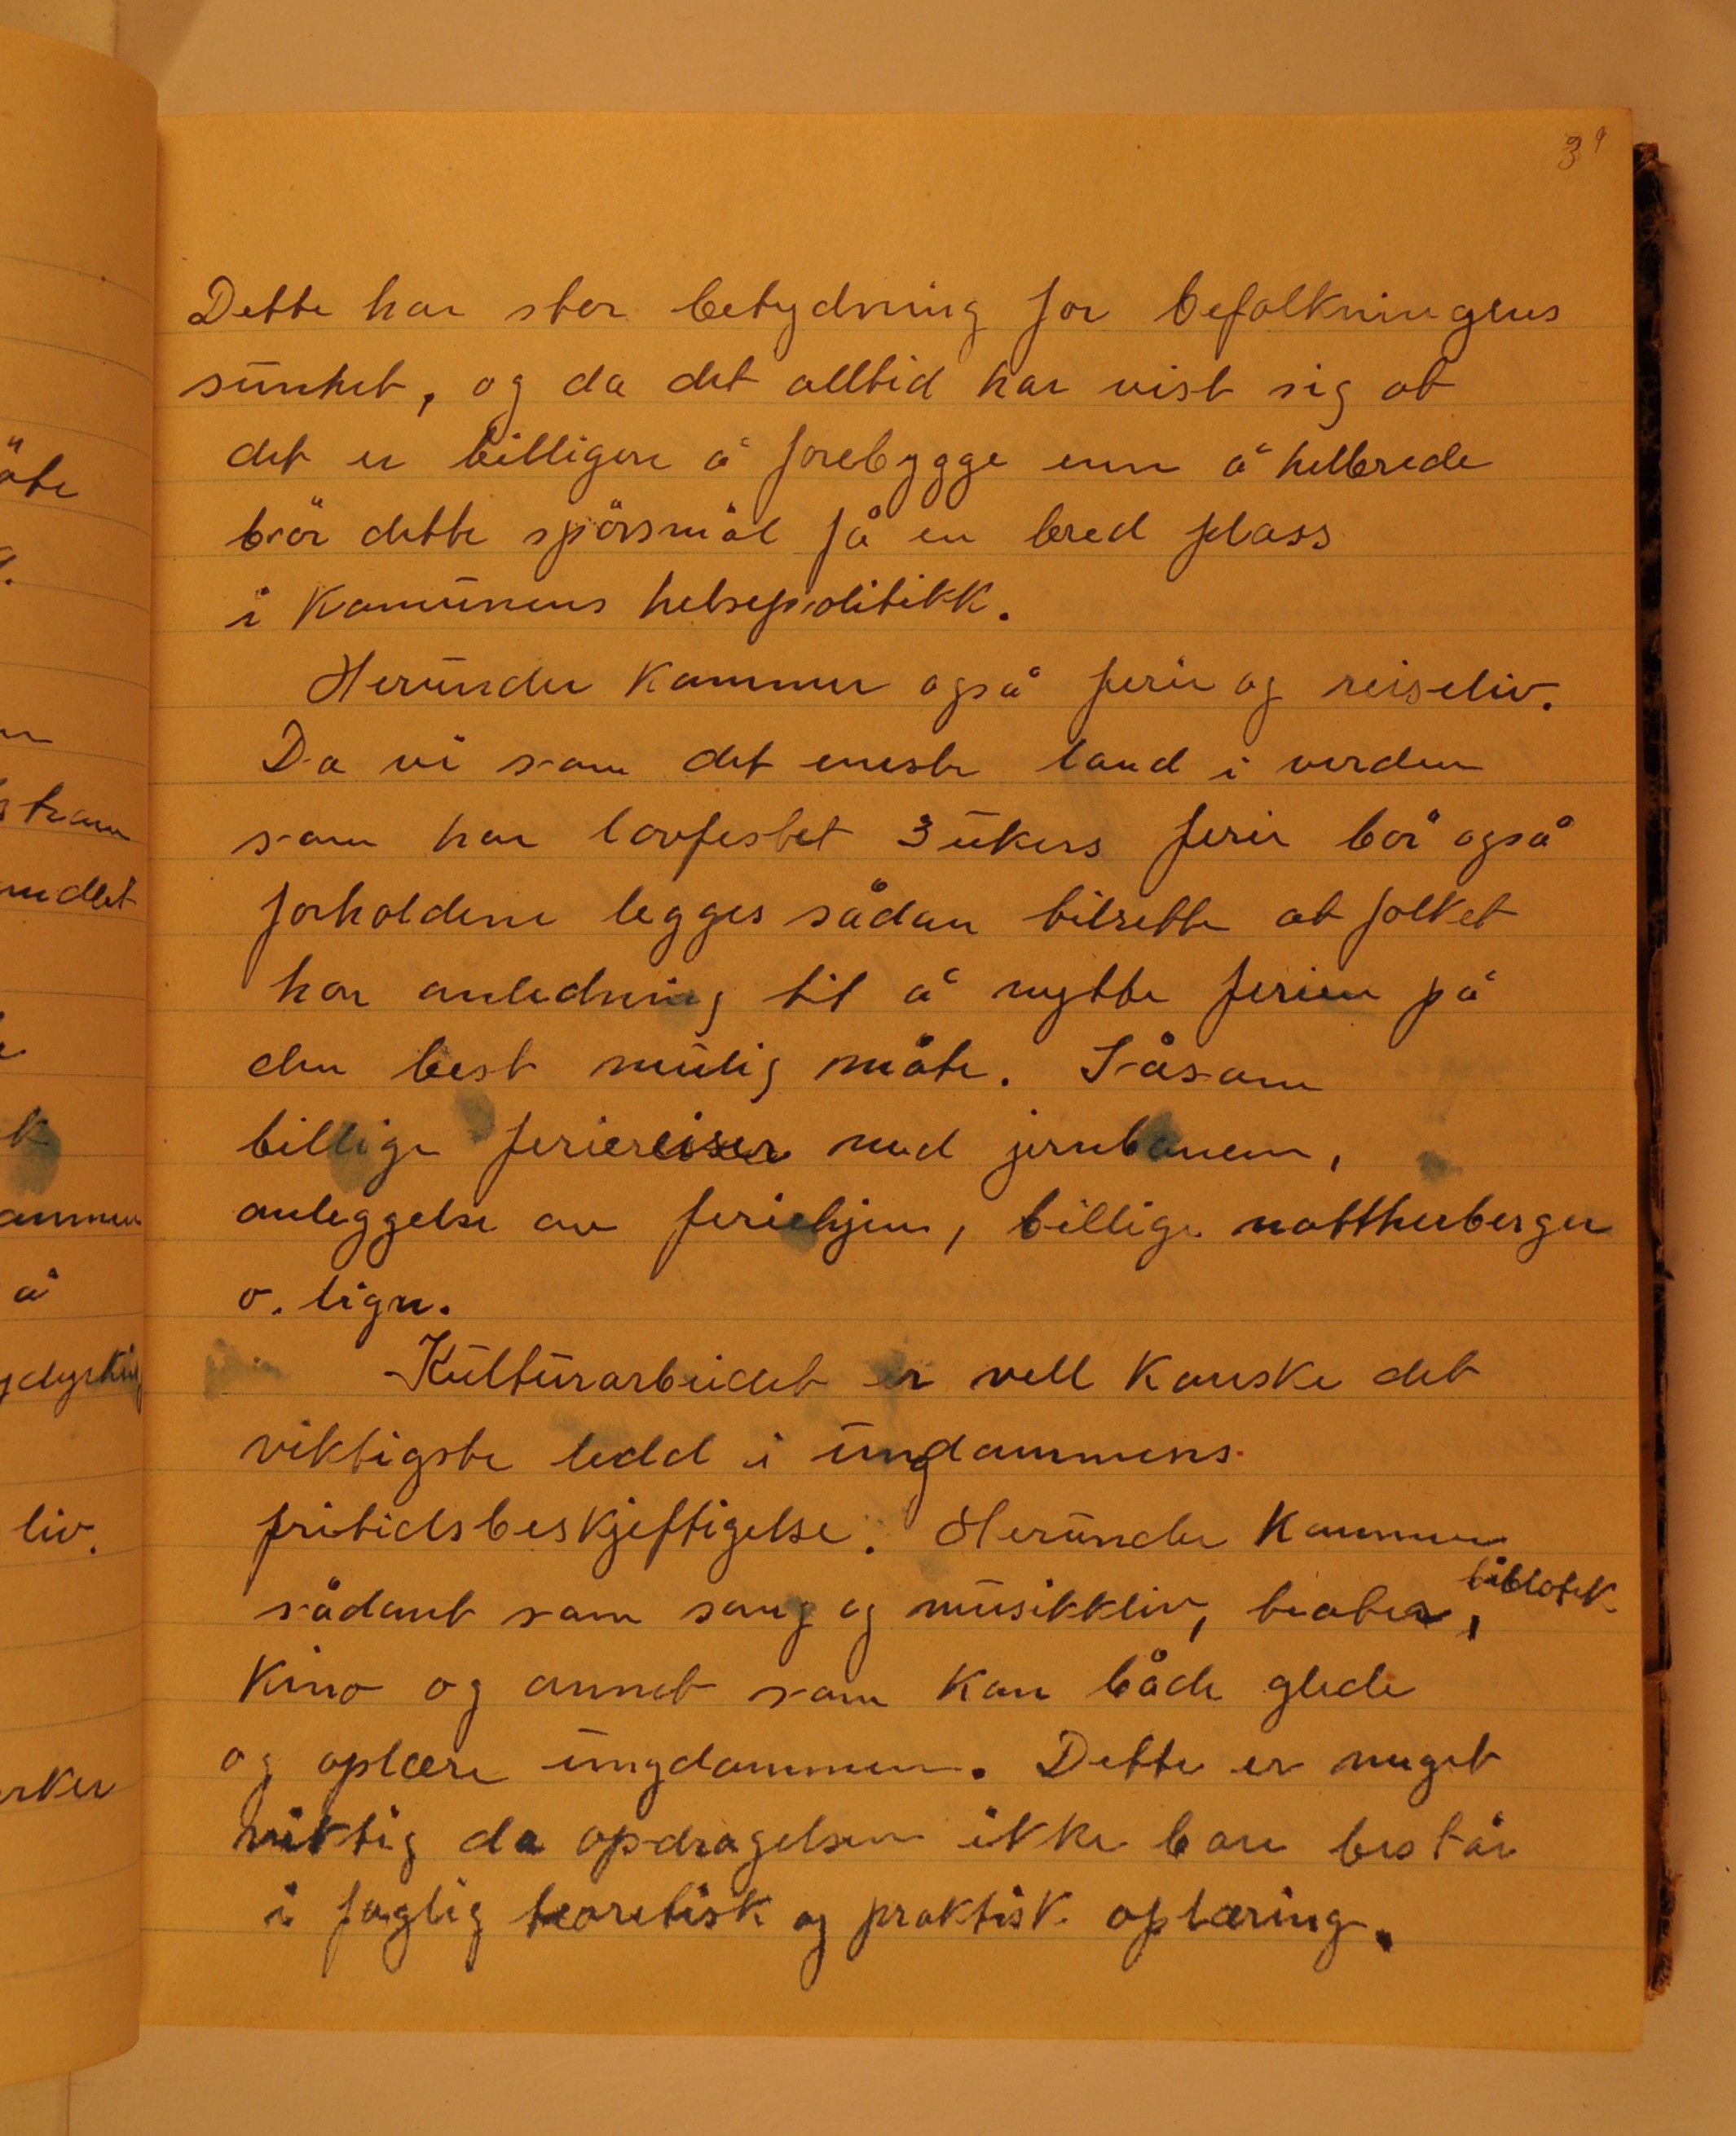 39
Dette har stor betydning for befolkningens
sunhet, og da det alltid har vist sig at
det er billigere å forebygge enn å helbrede
bör dette spörsmål få en bred plass
i Komunens helsepolitikk.
Herunder kommer også ferie og reiseliv.
Da vi som det eneste land i verden
som har lovfestet 3 ukers ferie bör også
forholdene legges sådan tilrette at folket
har anledning til å nytte ferien på
den best mulig måte. Såsom
billige feriereiser med jernbanen,
anleggelse av feriehjem, billige nattherberger
o. lign.
Kulturarbeidet er vell Kanske det
viktigste ledd i ungdommens
fritidsbeskjeftigelse. Herunder Kommer
sådant som sang og musikkliv, teater, biblotek
Kino og annet som Kan både glede
og oplære ungdommen. Dette er meget
viktig da opdragelsen ikke bare består
i faglig teoretisk og praktisk oplæring.
öte
liv.
å